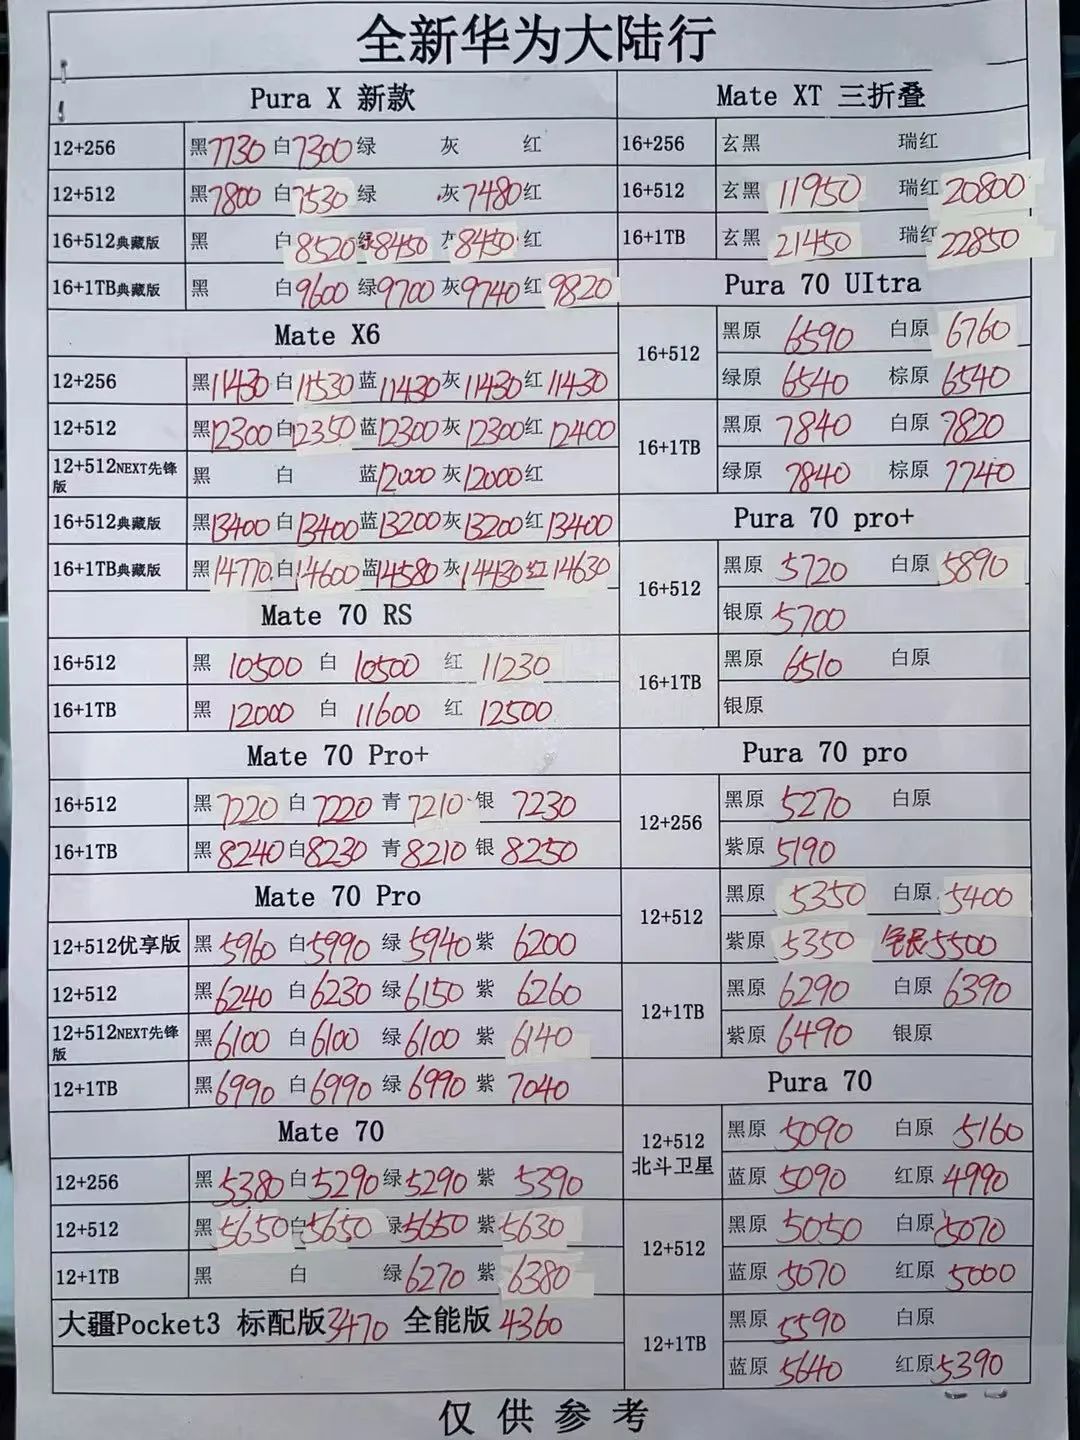 全新华为大陆行
Pura X 新款
12+256 黑7730 白7300 绿 灰 红
12+512 黑7800 白7530 绿 灰7480 红
16+512典藏版 黑 白8520 绿8450 灰8450 红
16+1TB典藏版 黑 白9600 绿9700 灰9740 红9820
Mate X6
12+256 黑11430 白11530 蓝11430 灰11430 红11430
12+512 黑12300 白12350 蓝12300 灰12300 红12400
12+512NEXT先锋版 黑 白 蓝12000 灰12000 红
16+512典藏版 黑13400 白13400 蓝13200 灰13200 红13400
16+1TB典藏版 黑14770 白14600 蓝14580 灰14430 红14630
Mate 70 RS
16+512 黑 10500 白 10500 红 11230
16+1TB 黑 12000 白 11600 红 12500
Mate 70 Pro+
16+512 黑7220 白7220 青7210 银7230
16+1TB 黑8240 白8230 青8210 银8250
Mate 70 Pro
12+512优享版 黑5960 白5990 绿5940 紫6200
12+512 黑6240 白6230 绿6150 紫6260
12+512NEXT先锋版 黑6100 白6100 绿6100 紫6140
12+1TB 黑6990 白6990 绿6990 紫7040
Mate 70
12+256 黑5380 白5290 绿5290 紫5390
12+512 黑5650 白5650 绿5650 紫5630
12+1TB 黑 白 绿6270 紫6380
大疆Pocket3 标配版3470 全能版4360
Mate XT 三折叠
16+256 玄黑 瑞红
16+512 玄黑 11950 瑞红20800
16+1TB 玄黑 21450 瑞红22850
Pura 70 UItra
16+512 黑原 6590 白原 6760
绿原 6540 棕原 6540
16+1TB 黑原 7840 白原 7820
绿原 7840 棕原 7740
Pura 70 pro+
16+512 黑原 5720 白原 5890
银原 5700
16+1TB 黑原 6510 白原
银原
Pura 70 pro
12+256 黑原 5270 白原
紫原 5190
12+512 黑原 5350 白原 5400
紫原 5350 银5500
12+1TB 黑原 6290 白原 6390
紫原 6490 银原
Pura 70
12+512北斗卫星 黑原 5090 白原 5160
蓝原 5090 红原 4990
12+512 黑原 5050 白原 5070
蓝原 5070 红原 5000
12+1TB 黑原 5590 白原
蓝原 5640 红原5390
仅供参考